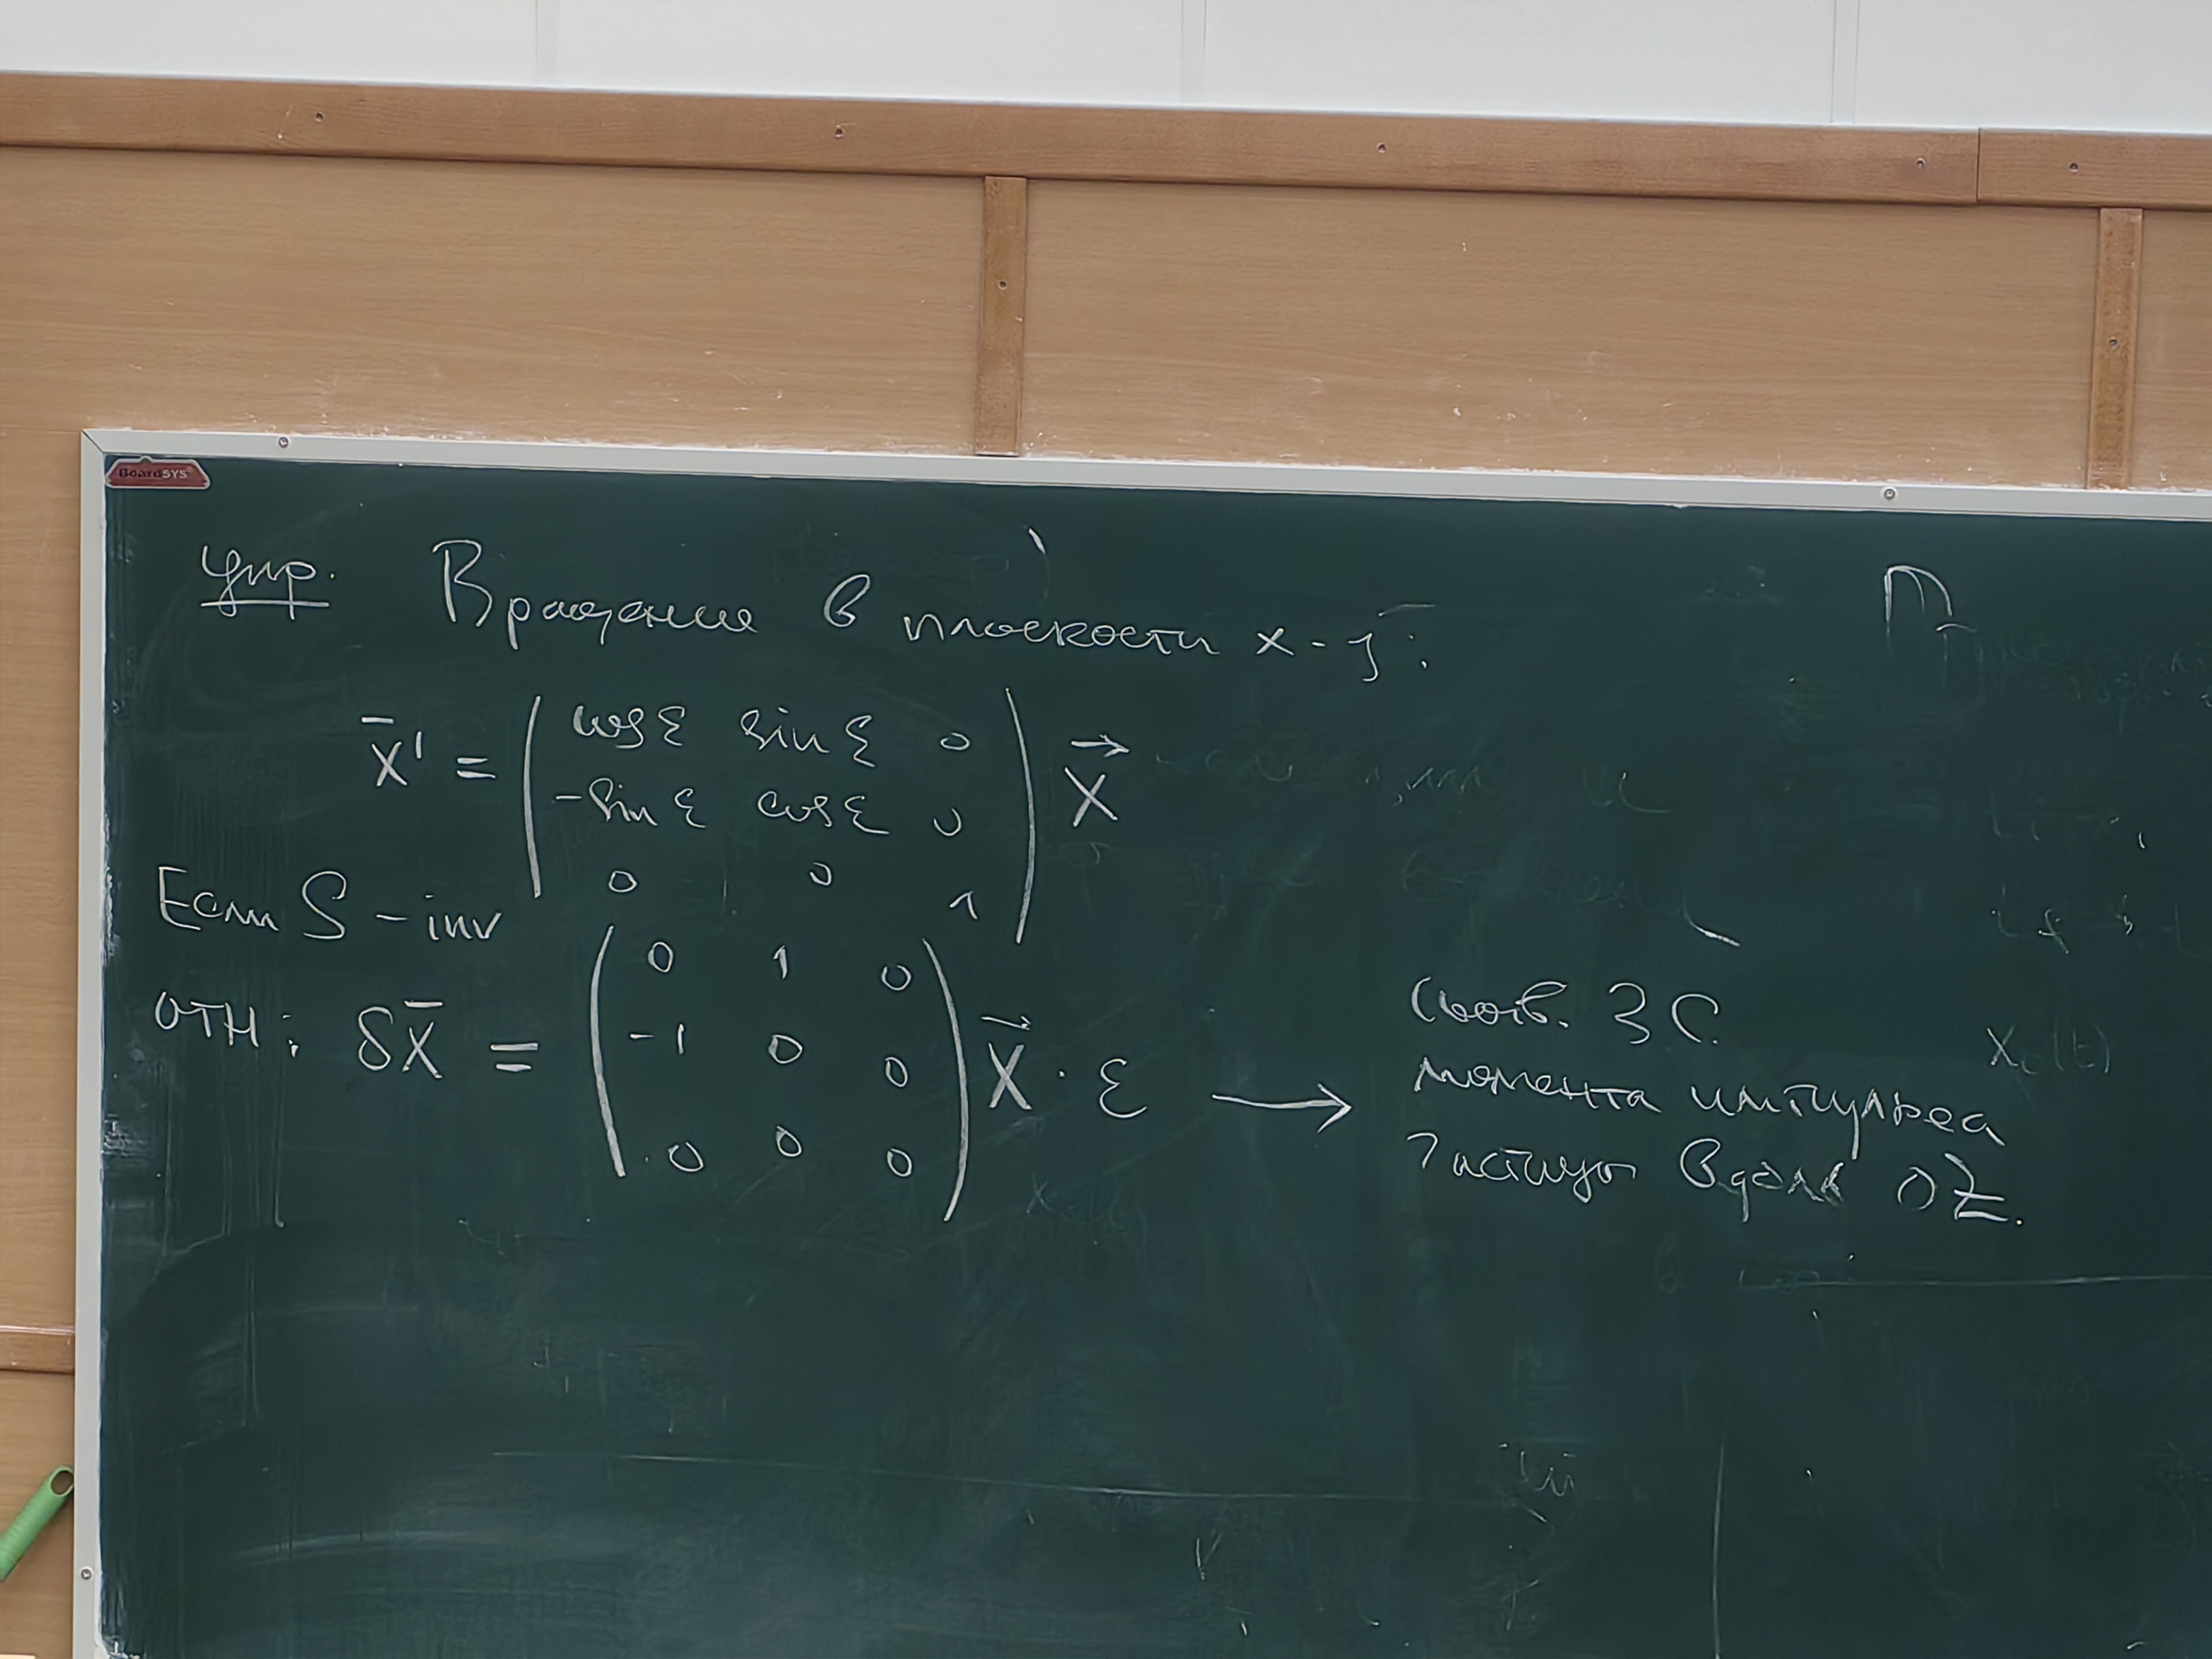 BoardSYS
Упр. Вращение в плоскости x-y:
x̄' = ( cos ε sin ε 0
-sin ε cos ε 0
0 0 1 ) x⃗
Если S - inv
отн: δx̄ = ( 0 1 0
-1 0 0
0 0 0 ) x⃗ · ε →
соотв. ЗС
момента импульса
частицы вдоль OZ.
x_c(t)